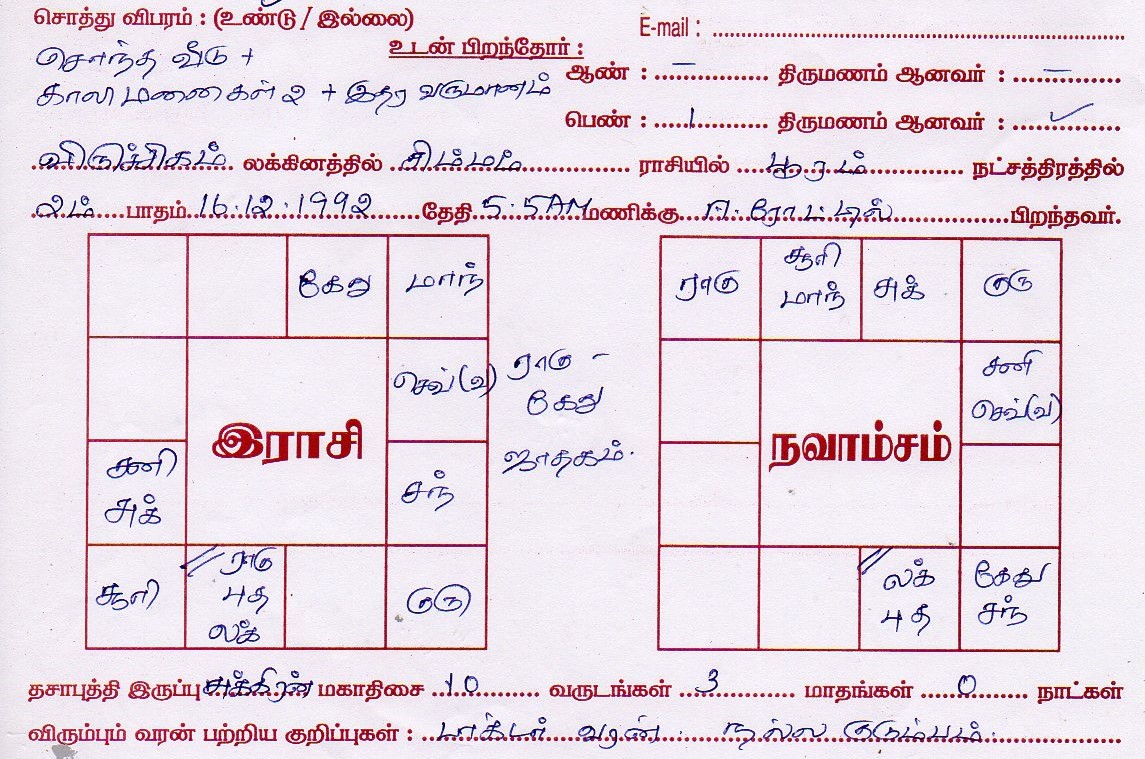 சொத்து விபரம் : (உண்டு / இல்லை)
E-mail : ..........
சொந்த வீடு +
உடன் பிறந்தோர் :
ஆண் : ..... – ..... திருமணம் ஆனவர் : ..... – .....
காலி மனைகள் 2 + இதர வருமானம்
பெண் : ..... 1 ..... திருமணம் ஆனவர் : ..... ✓ .....
விருச்சிகம் லக்கினத்தில் சிம்மம் ராசியில் பூரம் நட்சத்திரத்தில்
2ம் பாதம் 16.12.1992 தேதி 5.5AM மணிக்கு ஈரோட்டில் பிறந்தவர்.
கேது மாந்
ராகு சூரி மாந் சுக் குரு
செவ்(வ)
ராகு –
கேது
ஜாதகம்.
சனி செவ்(வ)
இராசி
நவாம்சம்
சனி சுக்
சந்
சூரி
ராகு புத லக்
குரு
லக் புத
கேது சந்
தசாபுத்தி இருப்பு சுக்கிரன் மகாதிசை 10 வருடங்கள் 3 மாதங்கள் 0 நாட்கள்
விரும்பும் வரன் பற்றிய குறிப்புகள் : டாக்டர் வரன். நல்ல குடும்பம்.